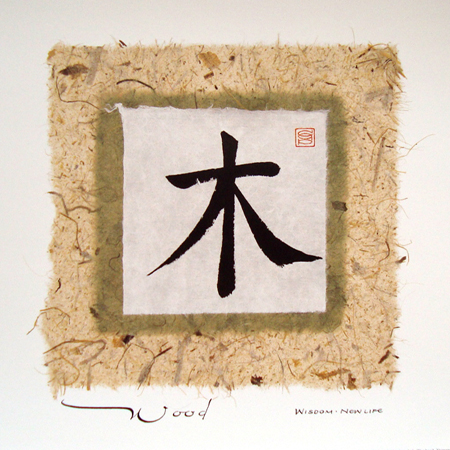 木
Wood
WISDOM · NEW LIFE